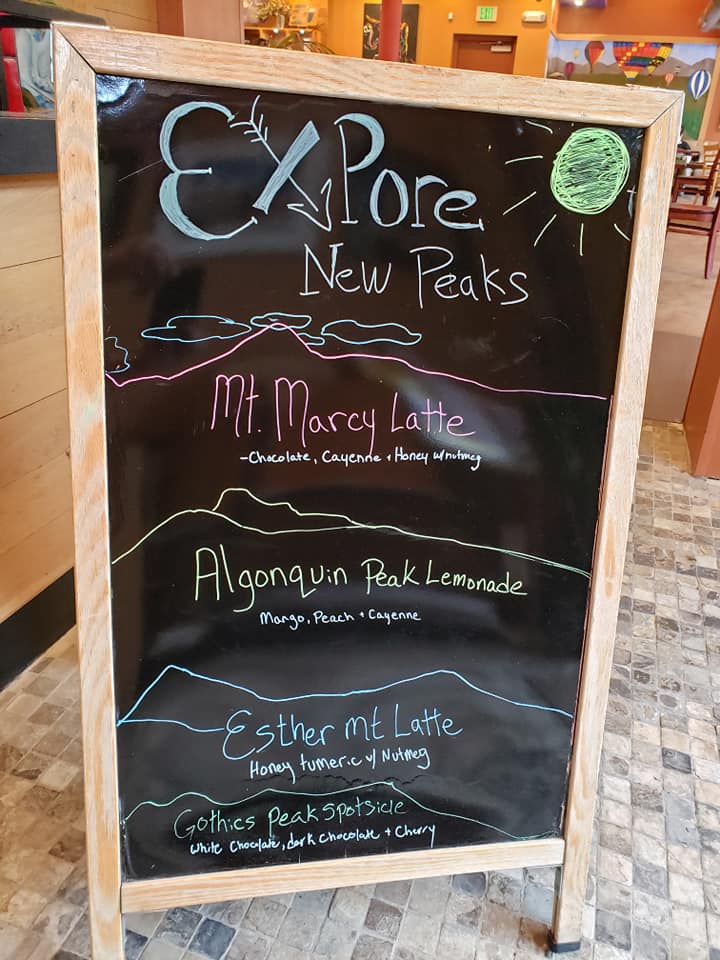 EXPore
New Peaks
Mt. Marcy Latte
-Chocolate, Cayenne + Honey w/nutmeg
Algonquin Peak Lemonade
Mango, Peach + Cayenne
Esther mt Latte
Honey tumeric w/ Nutmeg
Gothics Peak Spotsicle
White Chocolate, dark chocolate + Cherry